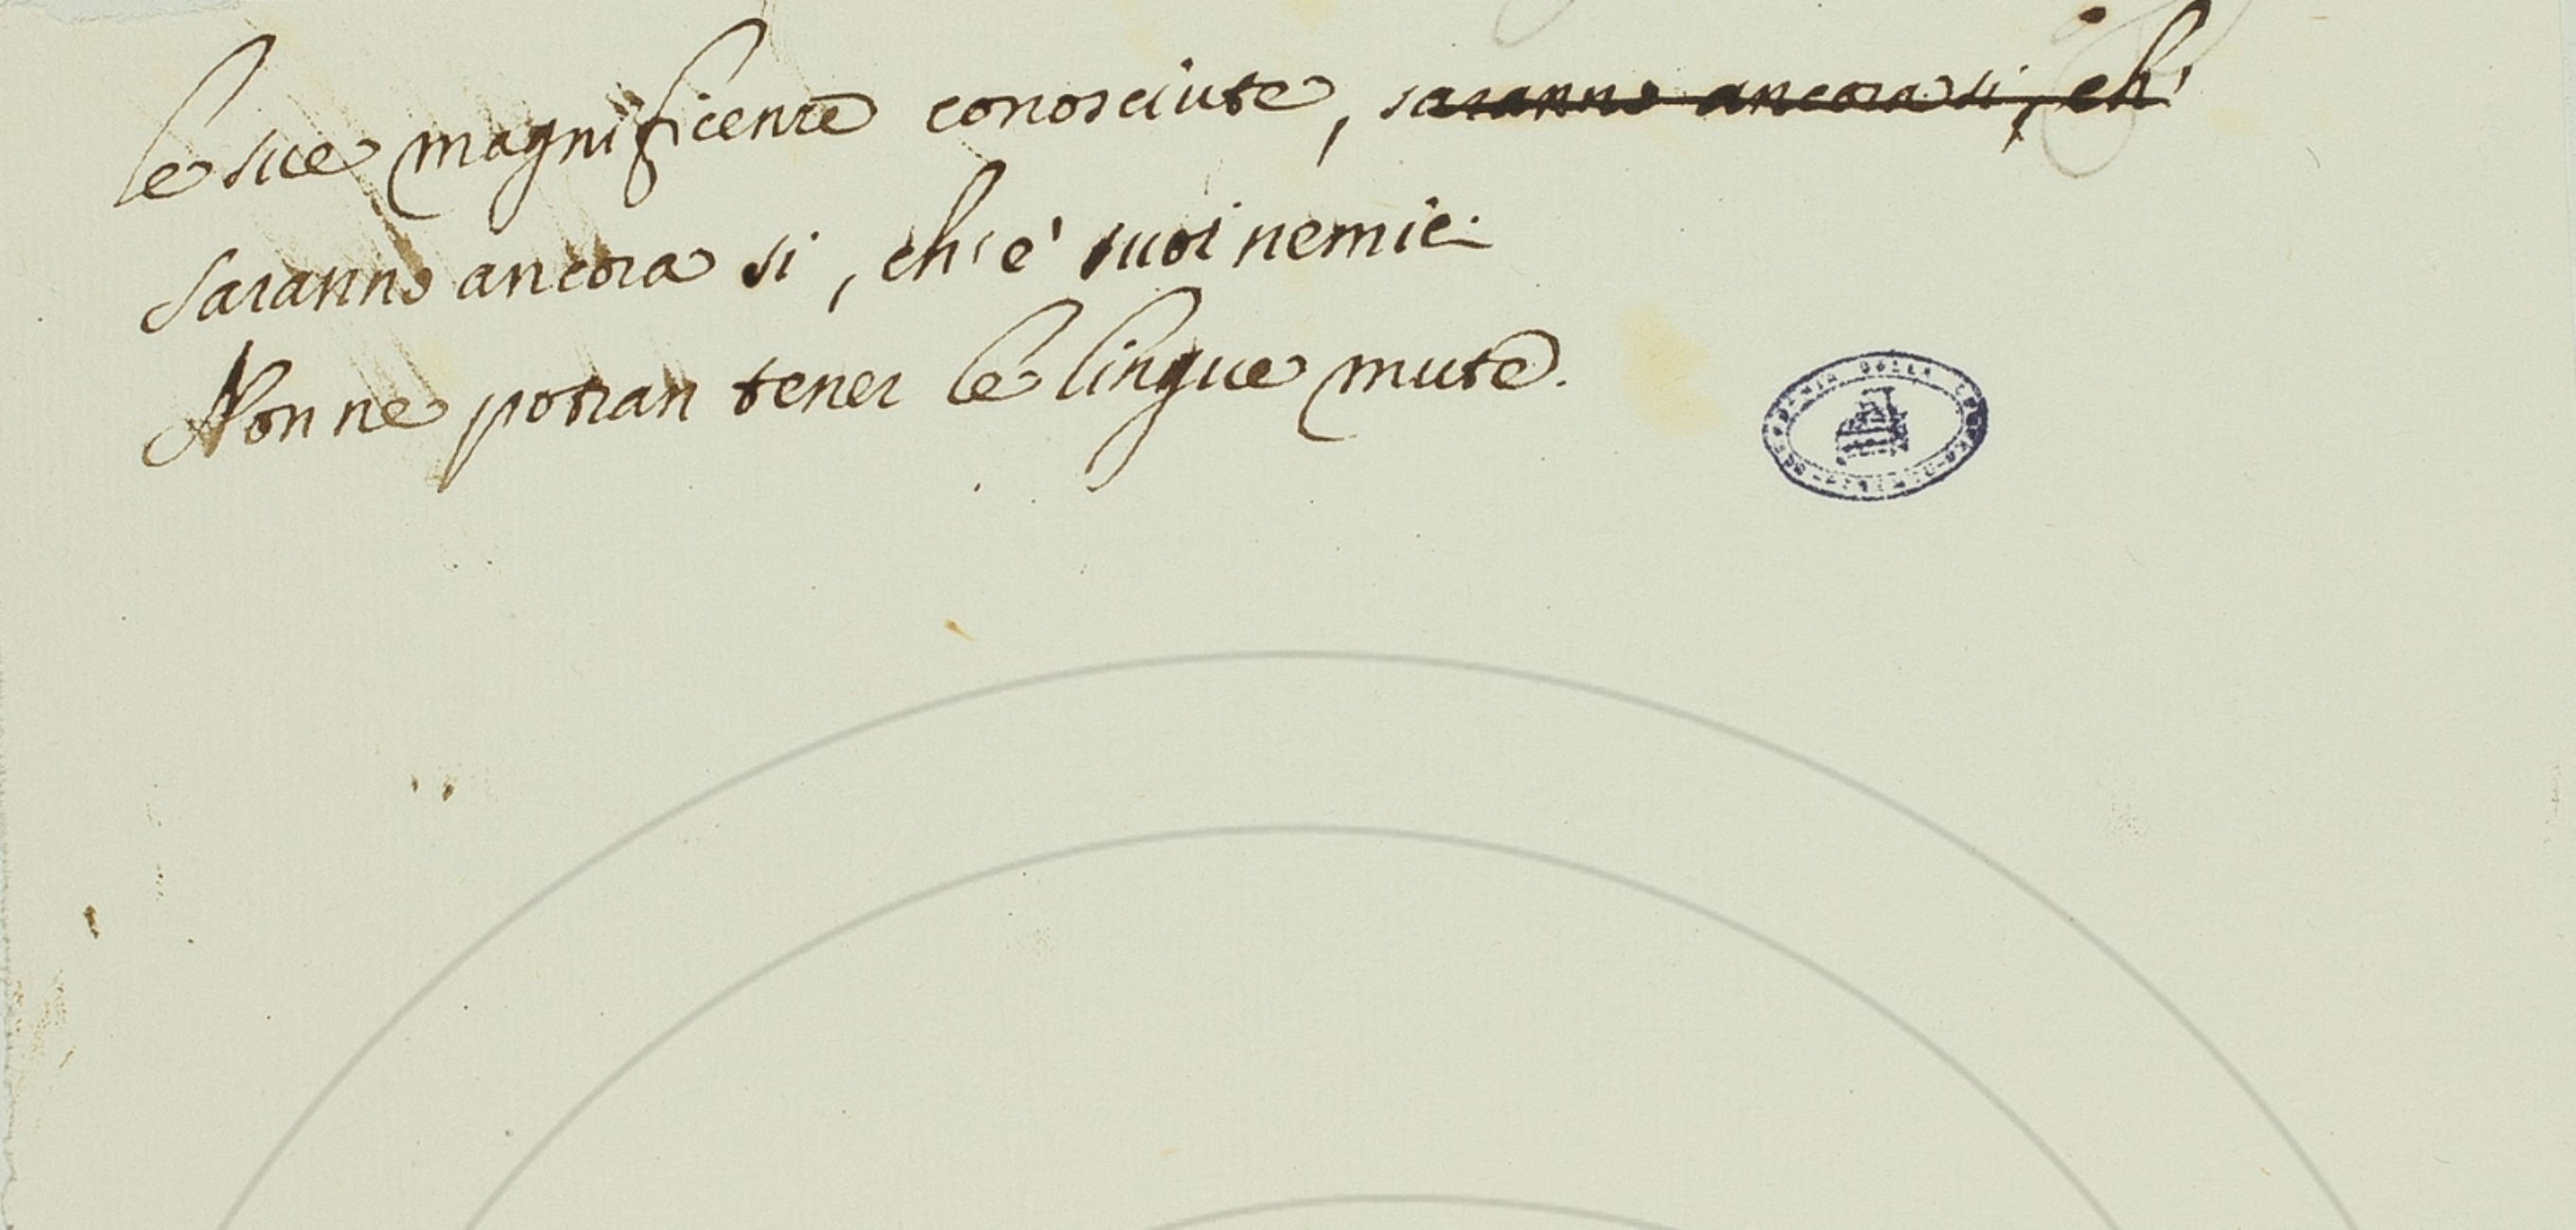 le sue magnificenze conosciute, saranno ancora si, ch'
Saranno ancora si, ch'e' suoi nemici
Non ne potran tener le lingue mute.
DELLA